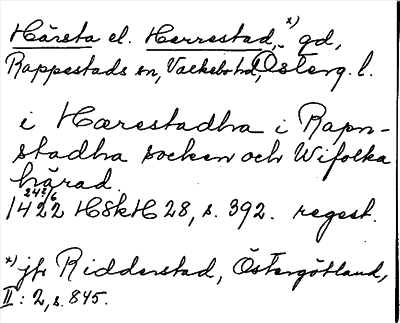 Hårsta el. Herrestad, x) gd,
Rappestads sn, Valkebo hd, Österg. l.
i Hærestadha i Rapn-
stadha socken och Wifolka
härad.
24/6
1422 HSkH 28, s. 392. regest.
x) jfr Ridderstad, Östergötland,
II: 2, s. 845.